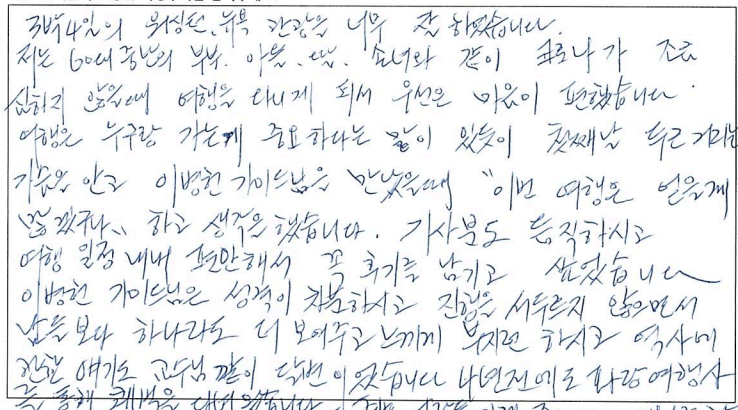 3박4일의 워싱턴, 뉴욕 관광을 너무 잘 하였습니다.
저는 60대 중년의 부부. 아들, 딸, 손녀와 같이 코로나가 조금
심하지 않을때 여행을 다니게 되서 우선은 마음이 편했습니다.
여행은 누구랑 가는게 중요하다는 말이 있듯이 첫째날 두근거리는
가슴을 안고 이병헌 가이드님을 만났을때 "이번 여행은 얻을게
많겠구나" 하고 생각을 했습니다. 기사분도 듬직하시고
여행 일정 내내 편안해서 꼭 후기를 남기고 싶었습니다
이병헌 가이드님은 성격이 차분하시고 진행을 서두르지 않으면서
남들보다 하나라도 더 보여주고 느끼게 부지런 하시고 역사에
관한 얘기도 교수님 같이 달변이었습니다 4년전에도 파랑여행사
를 통해 대녀왔습니다